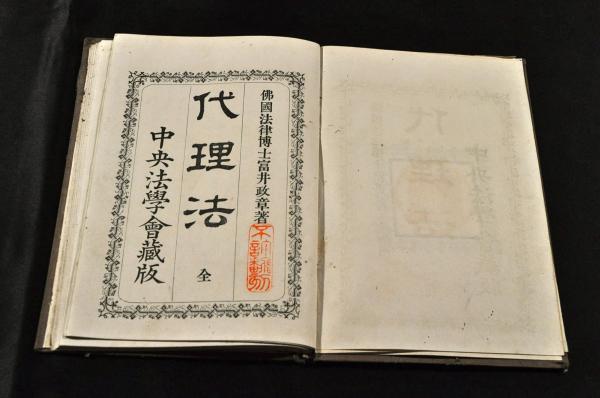 佛國法律博士富井政章著
代理法
全
中央法學會藏版